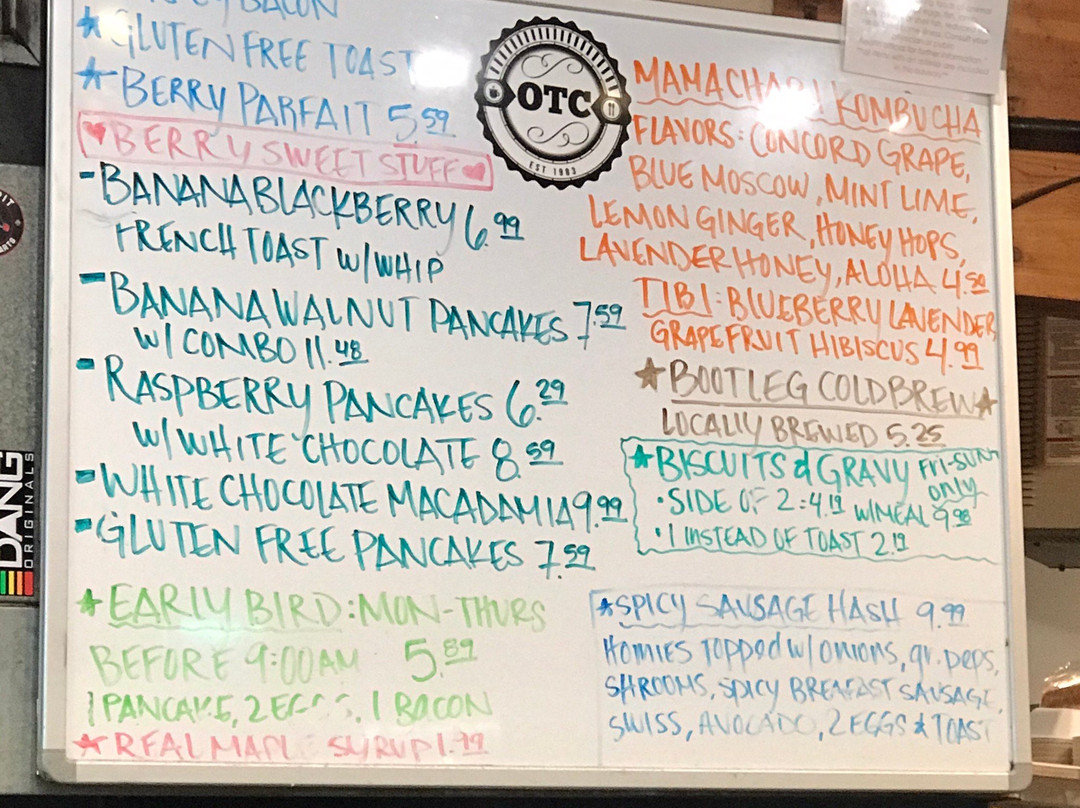 BACON
★ GLUTEN FREE TOAST
★ BERRY PARFAIT 5.59
♥BERRY SWEET STUFF♥
- BANANA BLACKBERRY 6.99
FRENCH TOAST W/WHIP
- BANANA WALNUT PANCAKES 7.59
W/ COMBO 11.48
- RASPBERRY PANCAKES 6.29
W/WHITE CHOCOLATE 8.59
- WHITE CHOCOLATE MACADAMIA 9.99
- GLUTEN FREE PANCAKES 7.59
★ EARLY BIRD: MON-THURS
BEFORE 9:00AM 5.89
1 PANCAKE, 2 EGGS, 1 BACON
★ REAL MAPLE SYRUP 1.99
OTC
EST 1983
MAMA CHARI KOMBUCHA
FLAVORS: CONCORD GRAPE,
BLUE MOSCOW, MINT LIME,
LEMON GINGER, HONEY HOPS,
LAVENDER HONEY, ALOHA 4.50
TIBI: BLUEBERRY LAVENDER
GRAPEFRUIT HIBISCUS 4.99
★BOOTLEG COLD BREW★
LOCALLY BREWED 5.25
★BISCUITS & GRAVY FRI-SUN
only
• SIDE OF 2: 4.19 W/MEAL 9.98
• 1 INSTEAD OF TOAST 2.19
★SPICY SAUSAGE HASH 9.99
HOMIES TOPPED W/ ONIONS, gr. peps,
SHROOMS, SPICY BREAFAST SAUSAGE,
SWISS, AVOCADO, 2 EGGS & TOAST
DANG
ORIGINALS